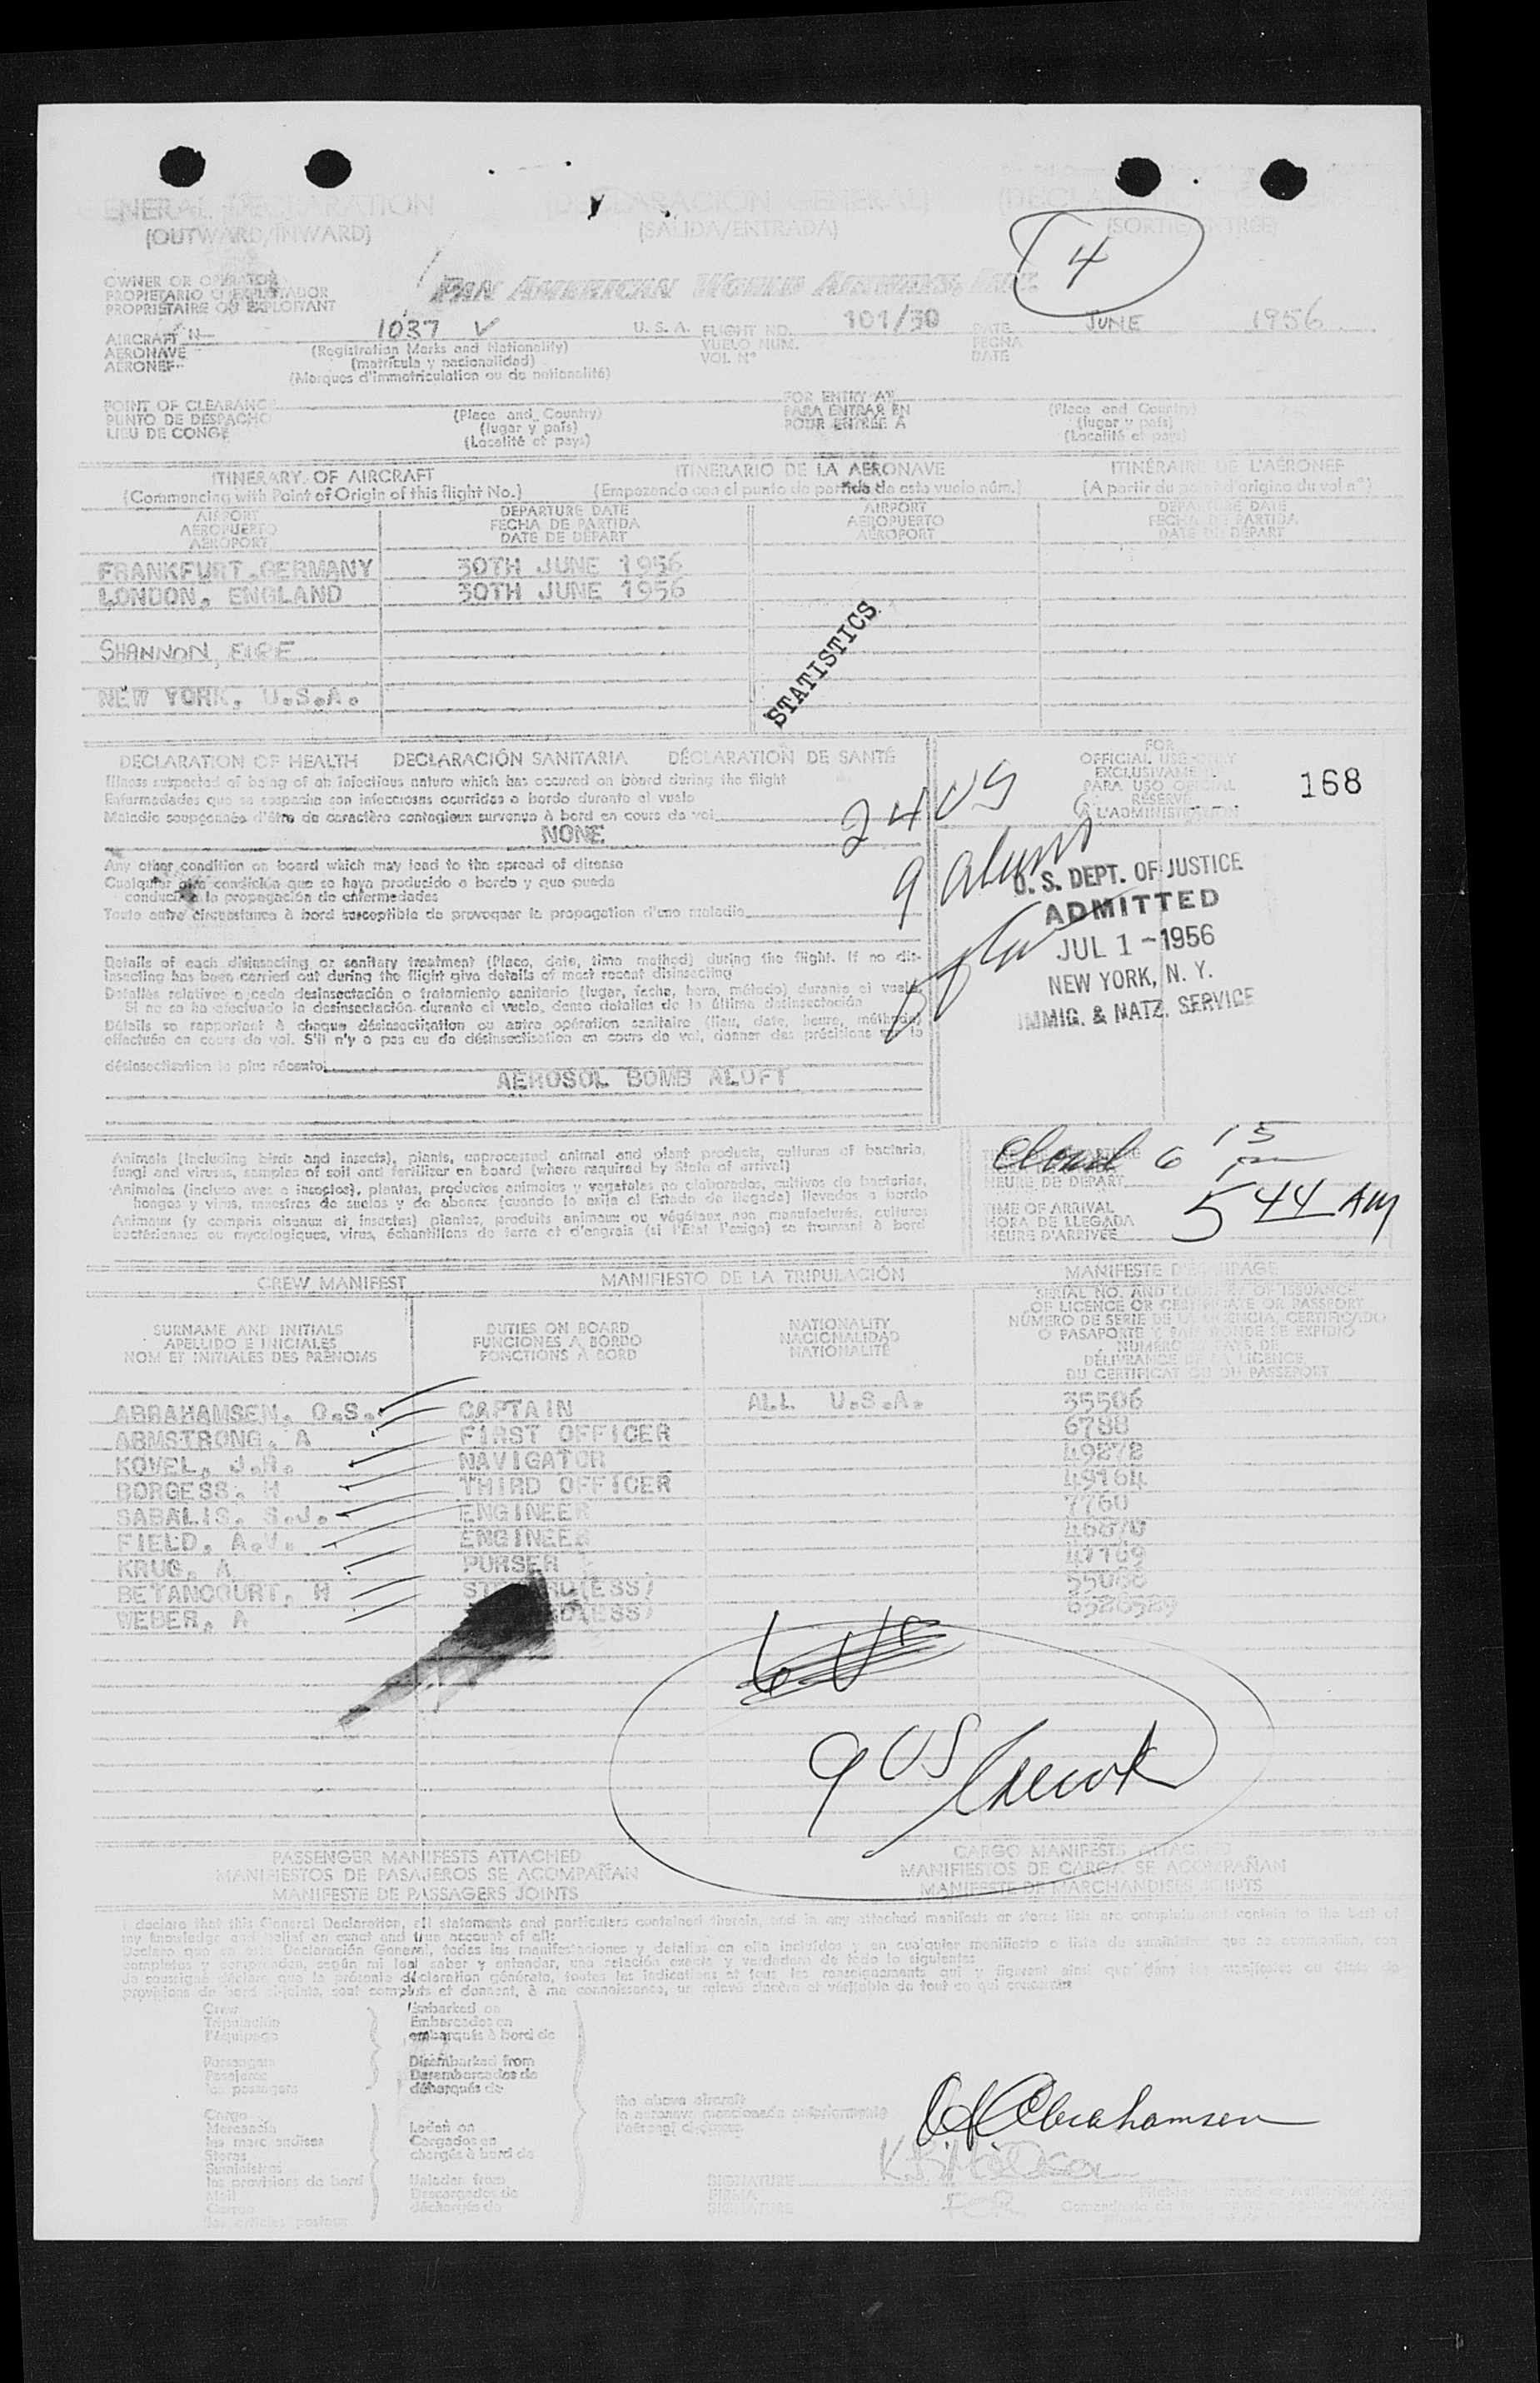 GENERAL DECLARATION (DECLARACIÓN GENERAL)
(OUTWARD/INWARD) (SALIDA/ENTRADA)
4
OWNER OR OPERATOR
PROPIETARIO O EXPLOTADOR
PROPRIÉTAIRE OU EXPLOITANT
PAN AMERICAN WORLD AIRWAYS, INC.
AIRCRAFT N 1037 V U.S.A. FLIGHT NO. 101/30 DATE JUNE 1956
AERONAVE (Registration Marks and Nationality) VUELO NUM. FECHA
AÉRONEF (matrícula y nacionalidad) VOL N° DATE
(Marques d'immatriculation ou de nationalité)
POINT OF CLEARANCE (Place and Country) FOR ENTRY AT (Place and Country)
PUNTO DE DESPACHO (lugar y país) PARA ENTRAR EN (lugar y país)
LIEU DE CONGÉ (Localité et pays) POUR ENTRÉE A (Localité et pays)
ITINERARY OF AIRCRAFT ITINERARIO DE LA AERONAVE ITINÉRAIRE DE L'AÉRONEF
(Commencing with Point of Origin of this flight No.) (Empezando con el punto de partida de este vuelo núm.) (A partir du point d'origine du vol n°)
AIRPORT DEPARTURE DATE AIRPORT DEPARTURE DATE
AEROPUERTO FECHA DE PARTIDA AEROPUERTO FECHA DE PARTIDA
AÉROPORT DATE DE DÉPART AÉROPORT DATE DE DÉPART
FRANKFURT,GERMANY 30TH JUNE 1956
LONDON, ENGLAND 30TH JUNE 1956
SHANNON, EIRE
NEW YORK, U.S.A.
STATISTICS
DECLARATION OF HEALTH DECLARACIÓN SANITARIA DÉCLARATION DE SANTÉ
Illness suspected of being of an infectious nature which has occured on board during the flight
Enfermedades que se sospecha son infecciosas ocurridas a bordo durante el vuelo
Maladie soupçonnée d'être de caractère contagieux survenue à bord en cours de vol
NONE
Any other condition on board which may lead to the spread of disease
Cualquier otra condición que se haya producido a bordo y que pueda
conducir a la propagación de enfermedades
Toute autre circonstance à bord susceptible de provoquer la propagation d'une maladie
Details of each disinsecting or sanitary treatment (Place, date, time method) during the flight. If no dis-
insecting has been carried out during the flight give details of most recent disinsecting
Detalles relativos a cada desinsectación o tratamiento sanitario (lugar, fecha, hora, método) durante el vuelo.
Si no se ha efectuado la desinsectación durante el vuelo, dense detalles de la última desinsectación
Détails se rapportant à chaque désinsectisation ou autre opération sanitaire (lieu, date, heure, méthode)
effectuée en cours de vol. S'il n'y a pas eu de désinsectisation en cours de vol, donner des précisions sur la
désinsectisation la plus récente:
AEROSOL BOMB ALOFT
FOR
OFFICIAL USE ONLY
EXCLUSIVAMENTE
PARA USO OFICIAL
RESERVÉ
A L'ADMINISTRATION
168
24 US
9 aliens
U. S. DEPT. OF JUSTICE
ADMITTED
JUL 1 - 1956
NEW YORK, N. Y.
IMMIG. & NATZ. SERVICE
Animals (including birds and insects), plants, unprocessed animal and plant products, cultures of bacteria,
fungi and viruses, samples of soil and fertilizer on board (where required by State of arrival)
Animales (incluso aves e insectos), plantas, productos animales y vegetales no elaborados, cultivos de bacterias,
hongos y virus, muestras de suelos y de abonos (cuando lo exija el Estado de llegada) llevados a bordo
Animaux (y compris oiseaux et insectes) plantes, produits animaux ou végétaux non manufacturés, cultures
bactériennes ou mycologiques, virus, échantillons de terre et d'engrais (si l'État l'exige) se trouvant à bord
6 15
HEURE DE DÉPART
TIME OF ARRIVAL
HORA DE LLEGADA
HEURE D'ARRIVÉE
5 44 AM
CREW MANIFEST MANIFIESTO DE LA TRIPULACIÓN MANIFESTE D'ÉQUIPAGE
SURNAME AND INITIALS DUTIES ON BOARD NATIONALITY SERIAL NO. AND COUNTRY OF ISSUANCE
APELLIDO E INICIALES FUNCIONES A BORDO NACIONALIDAD OF LICENCE OR CERTIFICATE OR PASSPORT
NOM ET INITIALES DES PRÉNOMS FONCTIONS À BORD NATIONALITÉ NÚMERO DE SERIE DE LA LICENCIA, CERTIFICADO
O PASAPORTE Y PAIS DONDE SE EXPIDIÓ
NUMÉRO ET PAYS DE
DÉLIVRANCE DE LA LICENCE
DU CERTIFICAT OU DU PASSEPORT
ABRAHAMSEN, O.S. CAPTAIN ALL U.S.A. 35506
ARMSTRONG, A FIRST OFFICER 6788
KOVEL, J.R. NAVIGATOR 49272
BORGESS, M THIRD OFFICER 49164
SABALIS, S.J. ENGINEER 7760
FIELD, A.V. ENGINEER
KRUG, A PURSER 47769
BETANCOURT, M
WEBER, A
6 US
9 US
PASSENGER MANIFESTS ATTACHED CARGO MANIFESTS ATTACHED
MANIFIESTOS DE PASAJEROS SE ACOMPAÑAN MANIFIESTOS DE CARGA SE ACOMPAÑAN
MANIFESTE DE PASSAGERS JOINTS MANIFESTE DE MARCHANDISES JOINTS
I declare that this General Declaration, all statements and particulars contained therein, and in any attached manifests or stores lists are complete and contain to the best of
my knowledge and belief an exact and true account of all:
Crew Embarked on
Tripulación Embarcados en
l'équipage embarqués à bord de
Passengers Disembarked from
Pasajeros Desembarcados de
les passagers débarqués de
Cargo
Mercancía Laden on
les marchandises Cargados en
Stores chargés à bord de
Suministros
les provisions de bord Unladen from
Mail Descargados de
Correo déchargés de
the above aircraft
la aeronave mencionada anteriormente
OS Abrahamsen
SIGNATURE
FIRMA
SIGNATURE